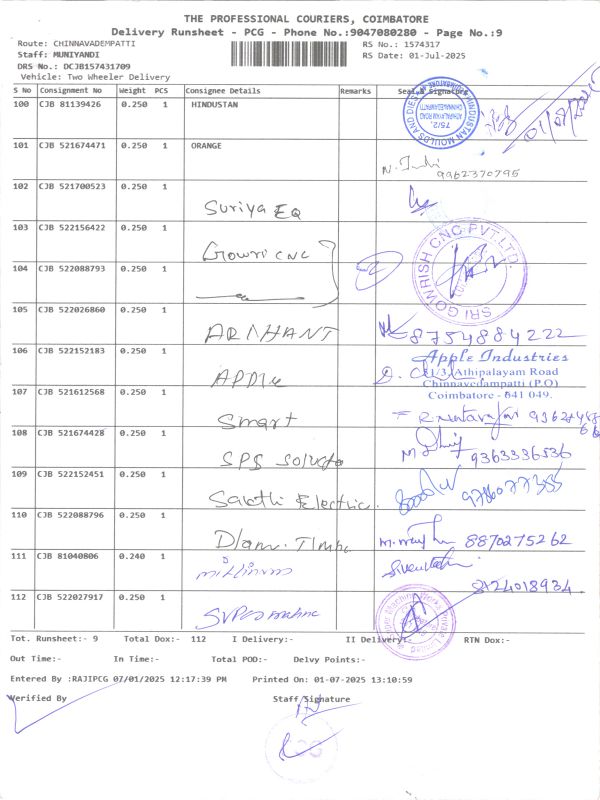 THE PROFESSIONAL COURIERS, COIMBATORE
Delivery Runsheet - PCG - Phone No.:9047080280 - Page No.:9
Route: CHINNAVADEMPATTI
Staff: MUNIYANDI
DRS No.: DCJB157431709
Vehicle: Two Wheeler Delivery
RS No.: 1574317
RS Date: 01-Jul-2025
S No Consignment No Weight PCS Consignee Details Remarks Seal & Signature
100 CJB 81139426 0.250 1 HINDUSTAN
HINDUSTAN MOULDS AND DIES
75/2,
ATHIPALAYAM ROAD
CHINNAVEDAMPATTI
01/07/2025
101 CJB 521674471 0.250 1 ORANGE
9962370795
102 CJB 521700523 0.250 1 Suriya EQ
103 CJB 522156422 0.250 1 Gowri CNC
SRI GOWRISH CNC PVT.LTD.
104 CJB 522088793 0.250 1
105 CJB 522026860 0.250 1 ARIHANT 8754884222
106 CJB 522152183 0.250 1 Apple
Apple Industries
81/3, Athipalayam Road
Chinnavedampatti (P.O)
Coimbatore - 641 049.
107 CJB 521612568 0.250 1 Smart
108 CJB 521674428 0.250 1 SPS 9363336536
109 CJB 522152451 0.250 1 Sakthi Electric.
110 CJB 522088796 0.250 1 8870275262
111 CJB 81040806 0.240 1
8124018934
112 CJB 522027917 0.250 1
Tot. Runsheet:- 9 Total Dox:- 112 I Delivery:- II Delivery:- RTN Dox:-
Out Time:- In Time:- Total POD:- Delvy Points:-
Entered By :RAJIPCG 07/01/2025 12:17:39 PM Printed On: 01-07-2025 13:10:59
Verified By Staff Signature